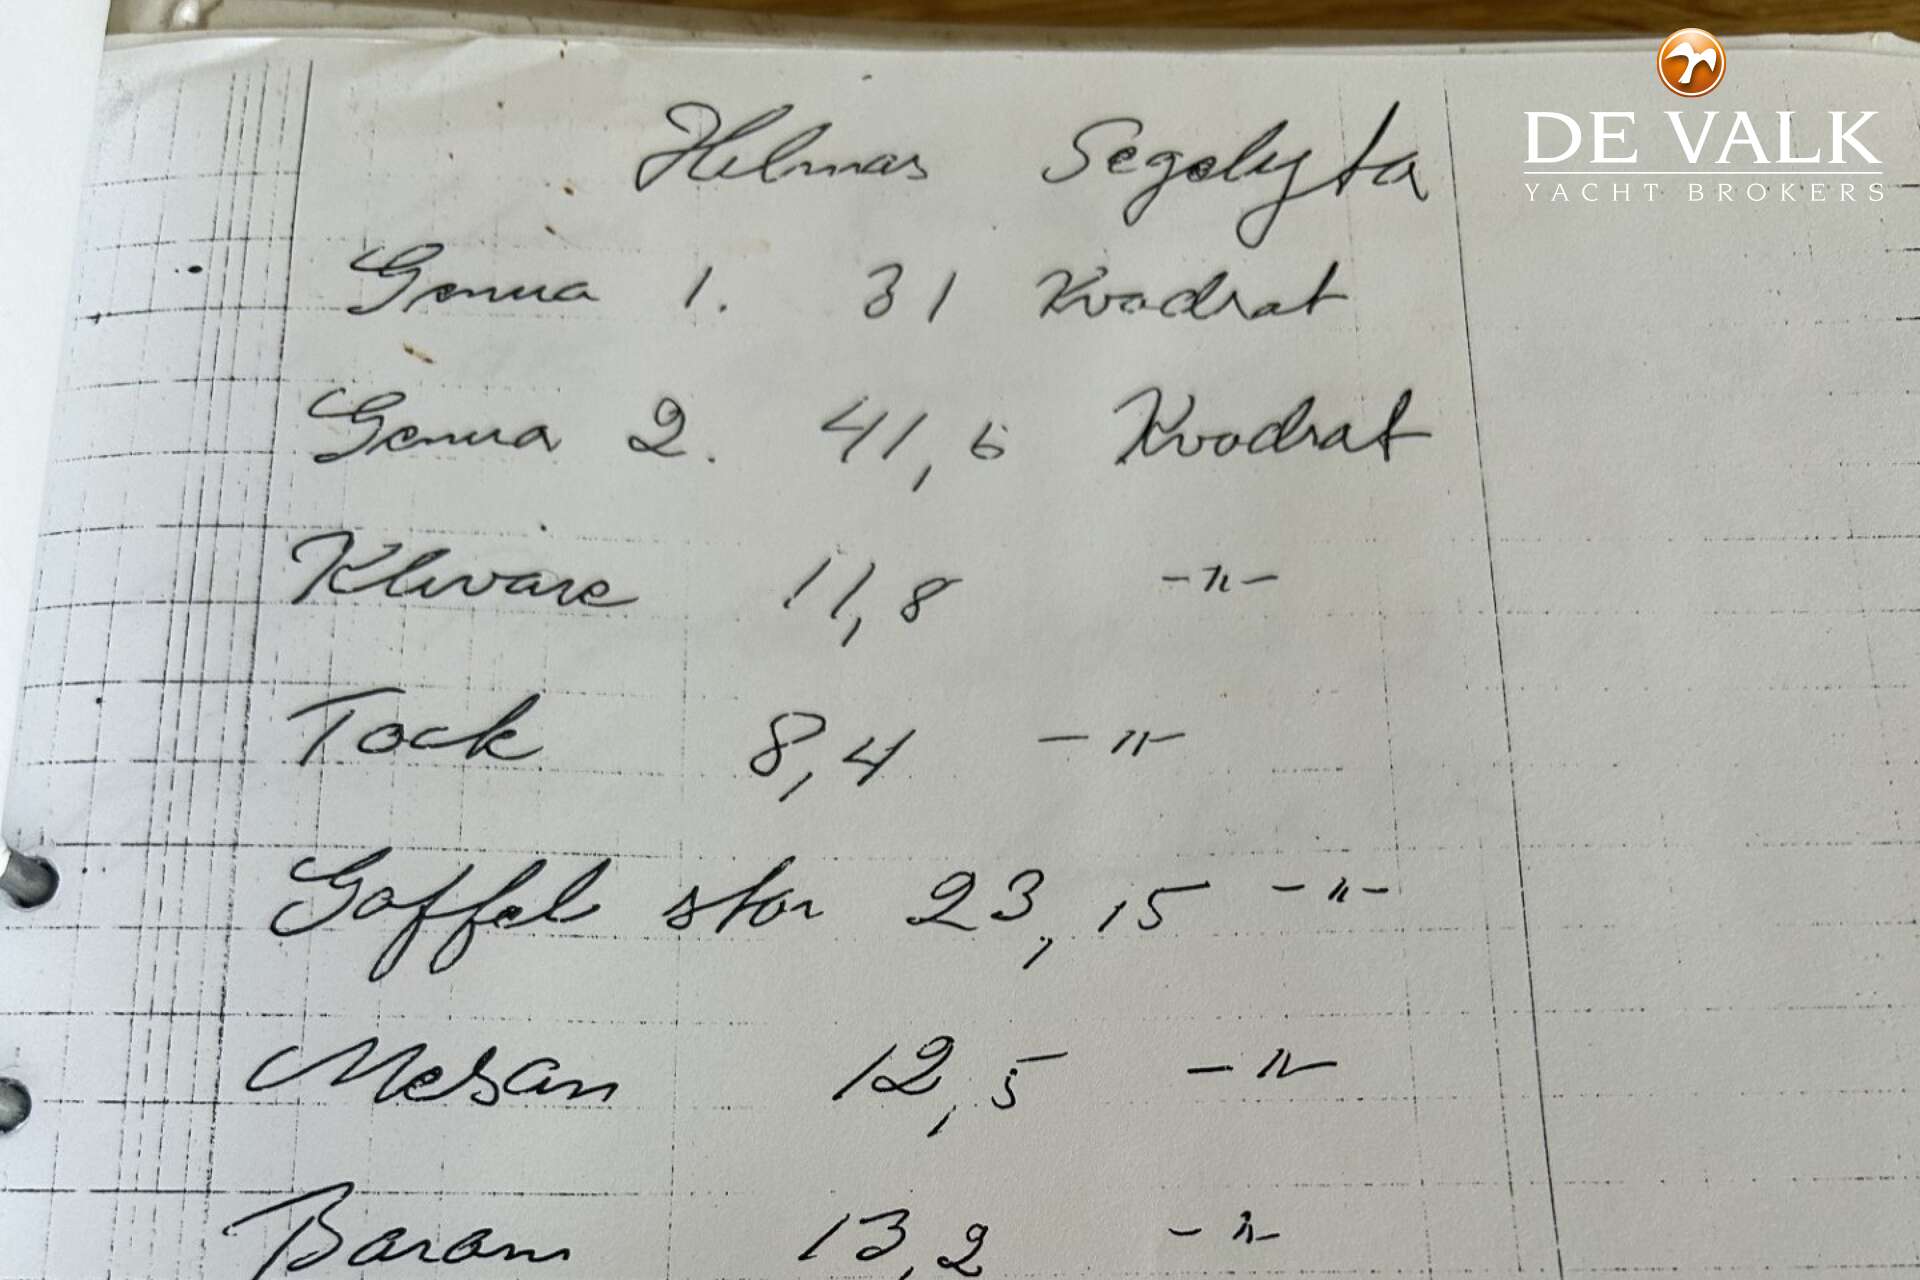 DE VALK
YACHT BROKERS
Helmas Segelyta
Genua 1. 31 Kvadrat
Genua 2. 41,5 Kvadrat
Klivare 11,8 -"-
Fock 8,4 -"-
Gaffel stor 23,15 -"-
Mesan 12,5 -"-
13,2 -"-